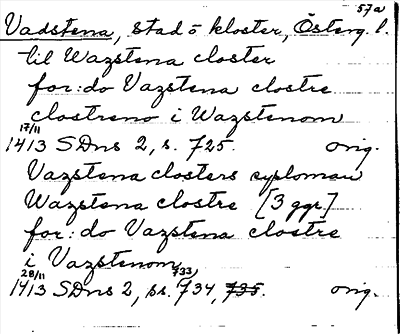 57a
Vadstena, stad o kloster, Österg. l.
til Wazstena closter
for:do Vazstena clostre
clostreno i Wazstenom
17/11
1413 SDns 2, s. 725. orig.
Vazstena closters sysloman
Wazstena clostre [3 ggr]
for:do Vazstena clostre
i Vazstenom
28/11 733,
1413 SDns 2, ss. 734, 735. orig.